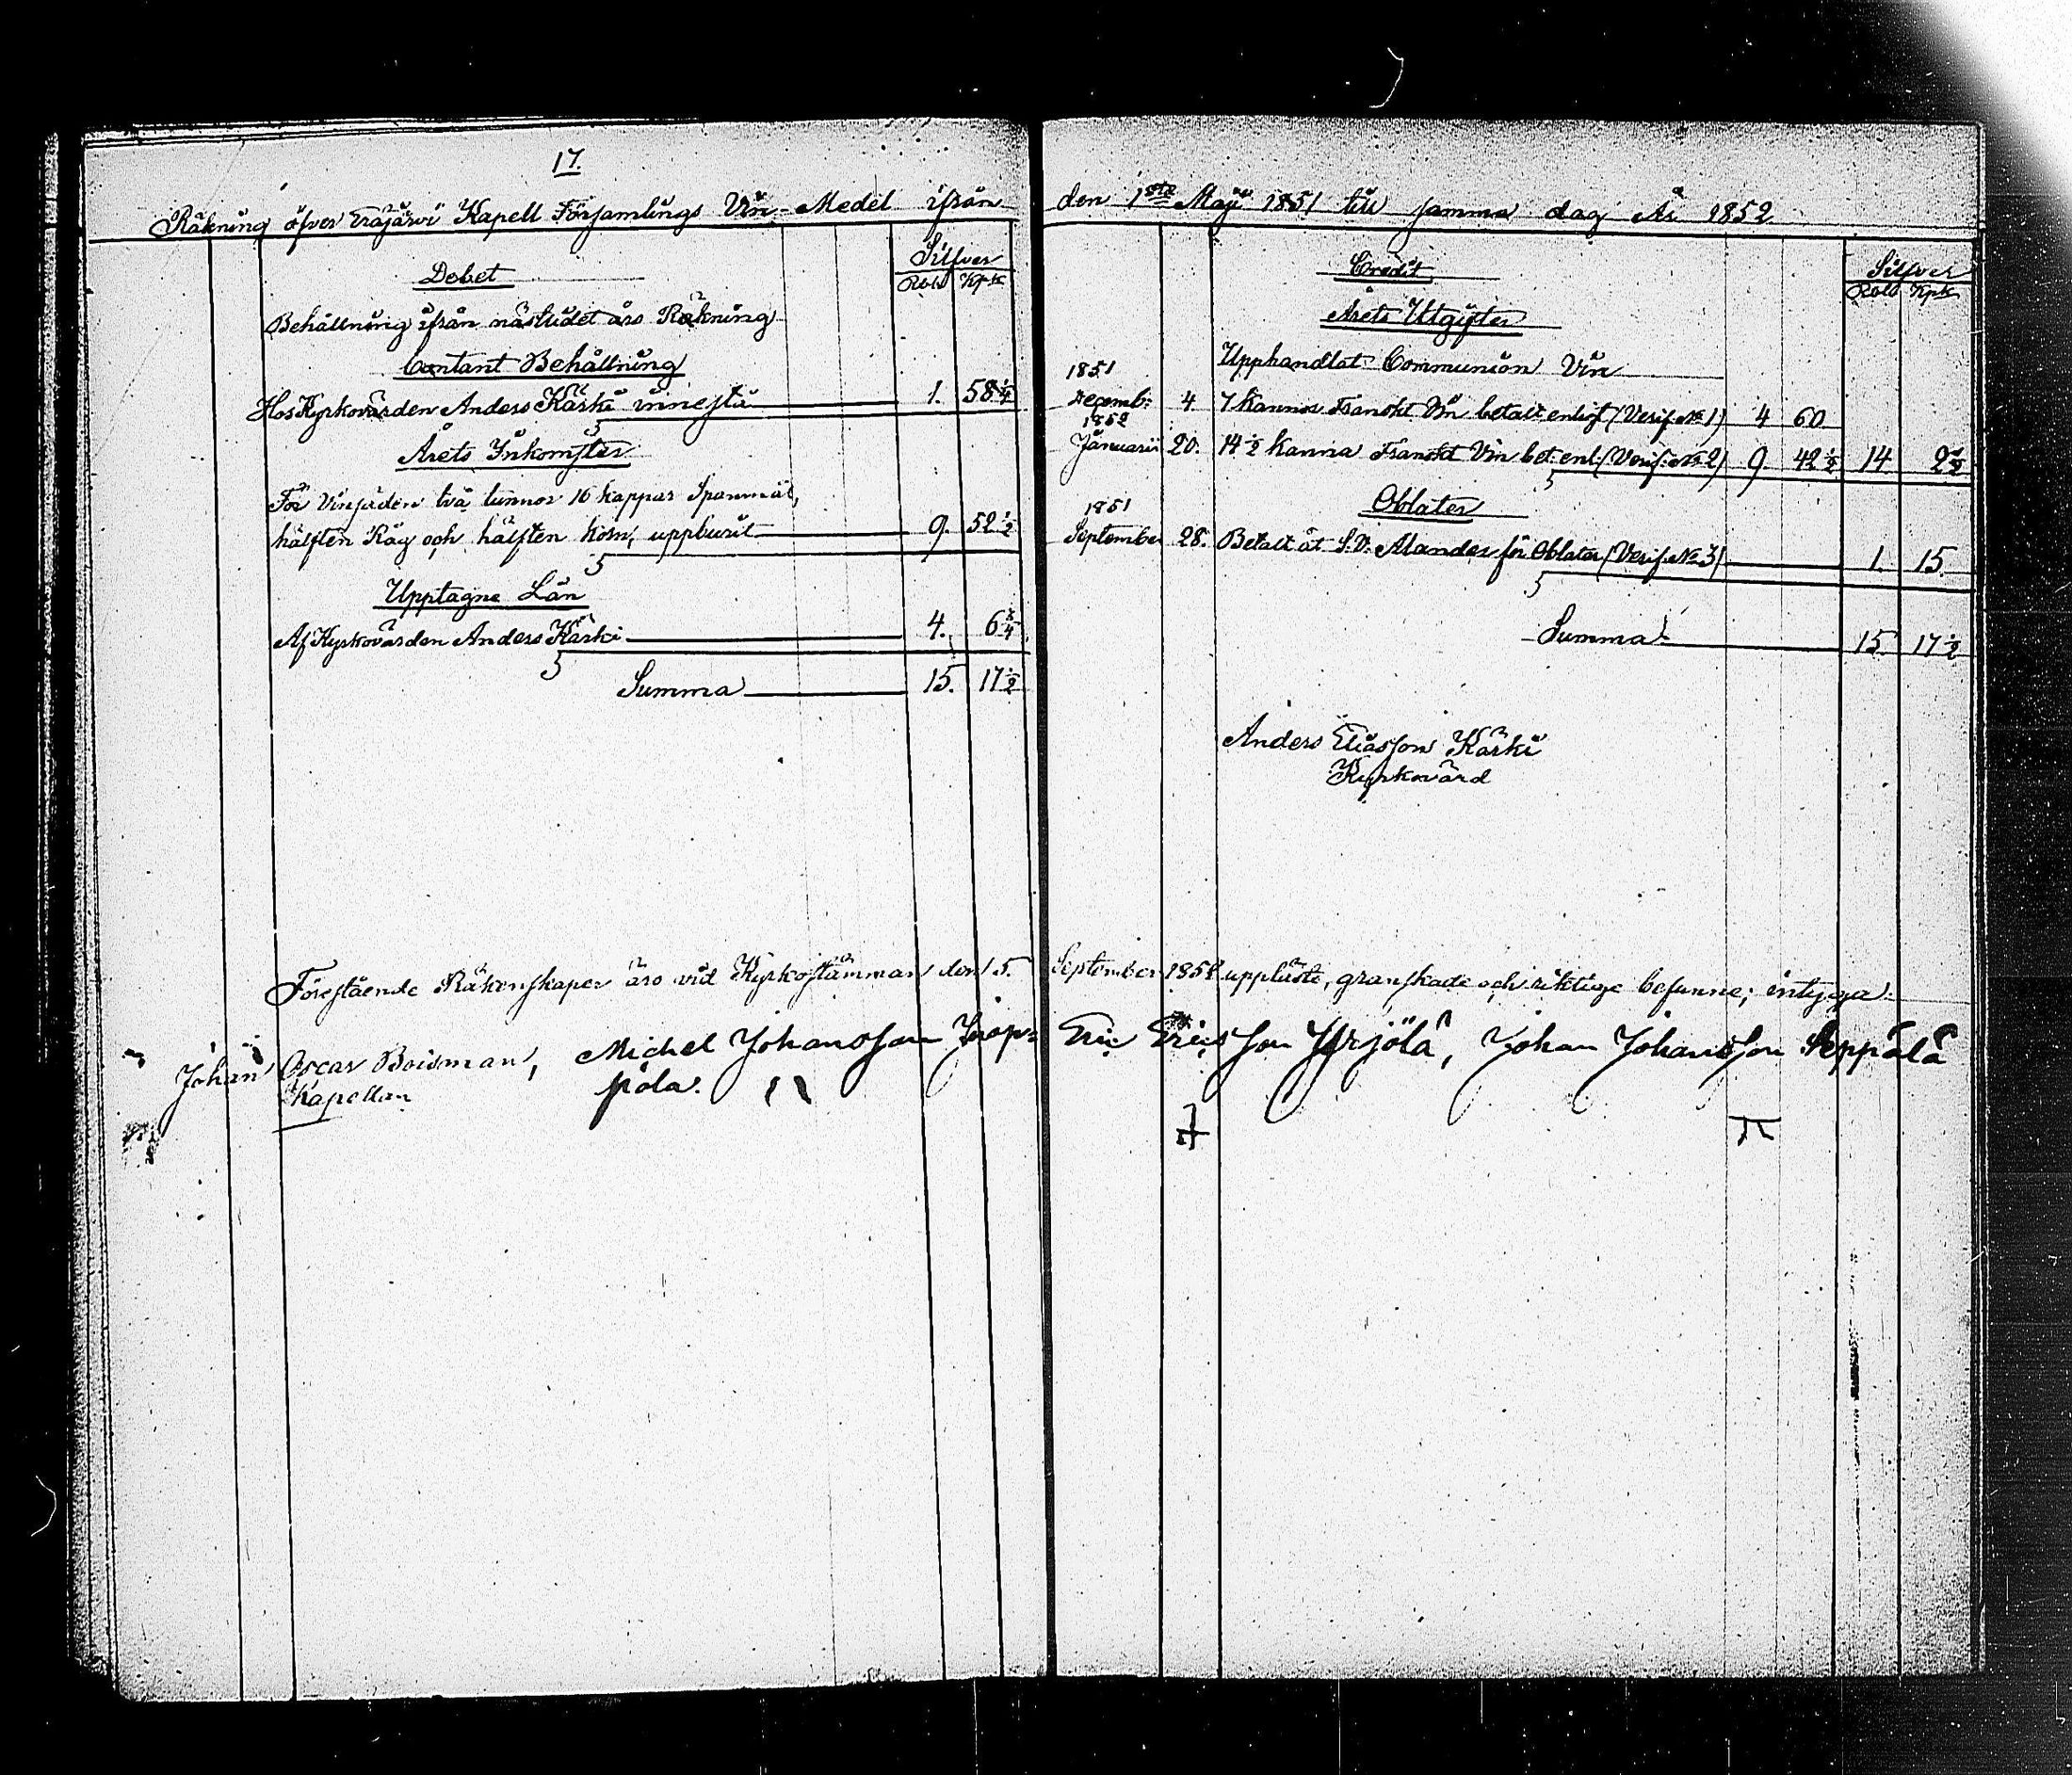 17.
Räkning öfver Eräjärvi Kapell Församlings Vin-Medel ifrån
Silfver
Debet
Rbl Kpk
Behållning ifrån nästlidet års Räkning
Contant Behållning
Hos Kyrkovärden Anders Kärki innestå 1. 58 1/4
Årets Inkomster
För Vinsäden två tunnor 16 kappar Spanmål,
hälften Råg och hälften korn, uppburit 9. 52 1/2
Upptagne Lån
Af Kyrkovärden Anders Kärki 4. 6 3/4
Summa 15. 17 1/2
Förestående Räkenskaper äro vid Kyrkostämman den 15.
Johan Oscar Boisman, Michel Johansson
Kapellan
pöla.
den 1sta Maji 1851 till samma dag År 1852
Credit
Silfver
Rbl Kpk
Årets Utgifter
Upphandlat Communion Vin
1851
Decemb: 4 7 Kannor Franskt Vin betalt enligt (Verif. No 1) 4 60
1852
Januarii 20. 14 1/2 Kanna Franskt Vin bet. enl. (Verif. No 2) 9. 42 1/2 14 2 1/2
Oblater
1851
September 28. Betalt åt S.V. Alander för Oblater (Verif. No 3) 1. 15.
Summa 15 17 1/2
Anders Eliasson Kärki
Kyrkovärd
September 1852 uppläste, granskade och riktige befunne; intyga:
Eric Ericsson Yrjölä, Johan Johansson Seppälä